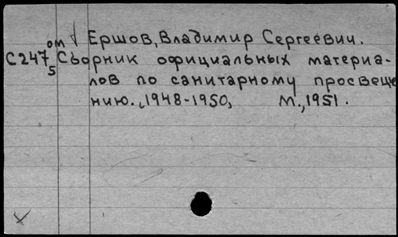 от Ершов, Владимир Сергеевич.
С247₅ Сборник официальных материа-
лов по санитарному просвеще
нию., 1948-1950, М., 1951.